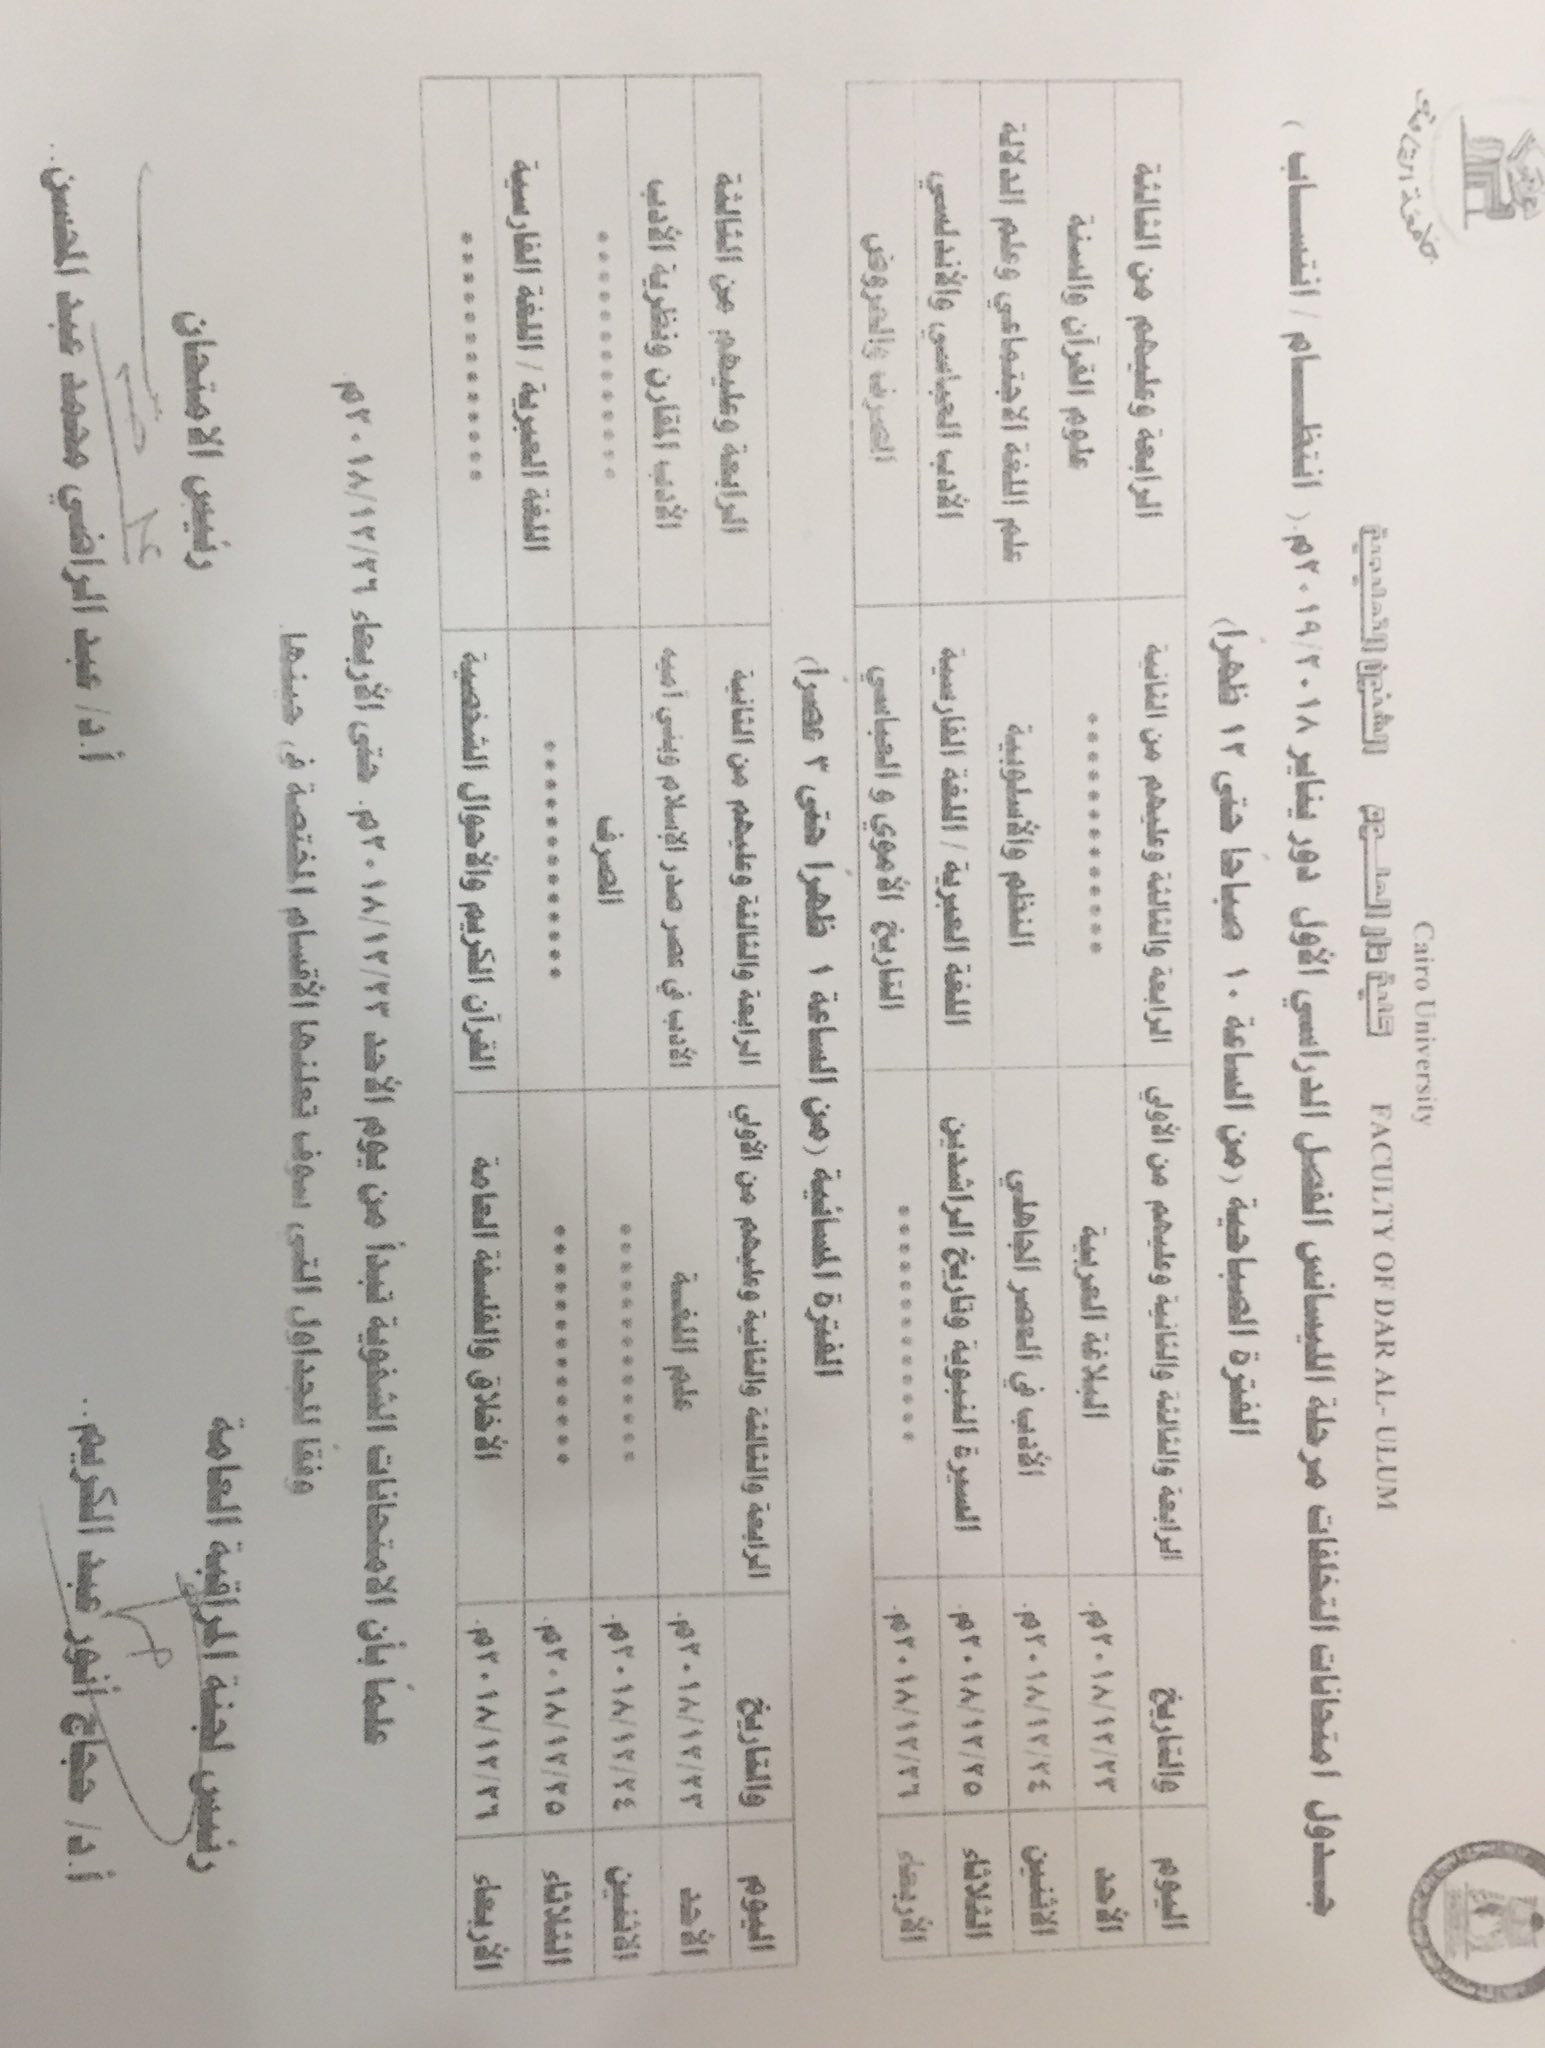 جامعة القاهرة
Cairo University
كلية دار العلوم
الشئون التعليمية
FACULTY OF DAR AL- ULUM
جدول امتحانات التخلفات مرحلة الليسانس الفصل الدراسي الأول دور يناير ٢٠١٩/٢٠١٨م. ( انتظــــام / انتســــاب )
الفترة الصباحية (من الساعة ١٠ صباحًا حتى ١٢ ظهرًا)
اليوم والتاريخ الرابعة والثالثة والثانية وعليهم من الأولي الرابعة والثالثة وعليهم من الثانية الرابعة وعليهم من الثالثة
الأحد ٢٠١٨/١٢/٢٣م. البلاغة العربية ********** علوم القرآن والسنة
الاثنين ٢٠١٨/١٢/٢٤م. الأدب في العصر الجاهلي النظم والأسلوبية علم اللغة الاجتماعي وعلم الدلالة
الثلاثاء ٢٠١٨/١٢/٢٥م. السيرة النبوية وتاريخ الراشدين اللغة العبرية / اللغة الفارسية الأدب العباسي والأندلسي
الأربعاء ٢٠١٨/١٢/٢٦م. ********** التاريخ الأموي و العباسي الصرف والعروض
الفترة المسائية (من الساعة ١ ظهرًا حتى ٣ عصرًا)
اليوم والتاريخ الرابعة والثالثة والثانية وعليهم من الأولي الرابعة والثالثة وعليهم من الثانية الرابعة وعليهم من الثالثة
الأحد ٢٠١٨/١٢/٢٣م. علم اللغــة الأدب في عصر صدر الإسلام وبني أميه الأدب المقارن ونظرية الأدب
الاثنين ٢٠١٨/١٢/٢٤م. ********** الصرف **********
الثلاثاء ٢٠١٨/١٢/٢٥م. ********** ********** اللغة العبرية / اللغة الفارسية
الأربعاء ٢٠١٨/١٢/٢٦م. الأخلاق والفلسفة العامة القرآن الكريم والأحوال الشخصية **********
علمًا بأن الامتحانات الشفوية تبدأ من يوم الأحد ٢٠١٨/١٢/٢٣م. حتى الأربعاء ٢٠١٨/١٢/٢٦م.
وفقًا للجداول التي سوف تعلنها الأقسام المختصة في حينها.
رئيس لجنة المراقبة العامة
رئيس الامتحان
أ.د/ حجاج أنور عبد الكريم..
أ.د/ عبد الراضي محمد عبد المحسن..